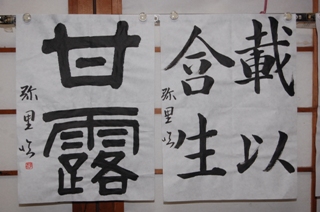 載以
含生
弥里
甘露
弥里